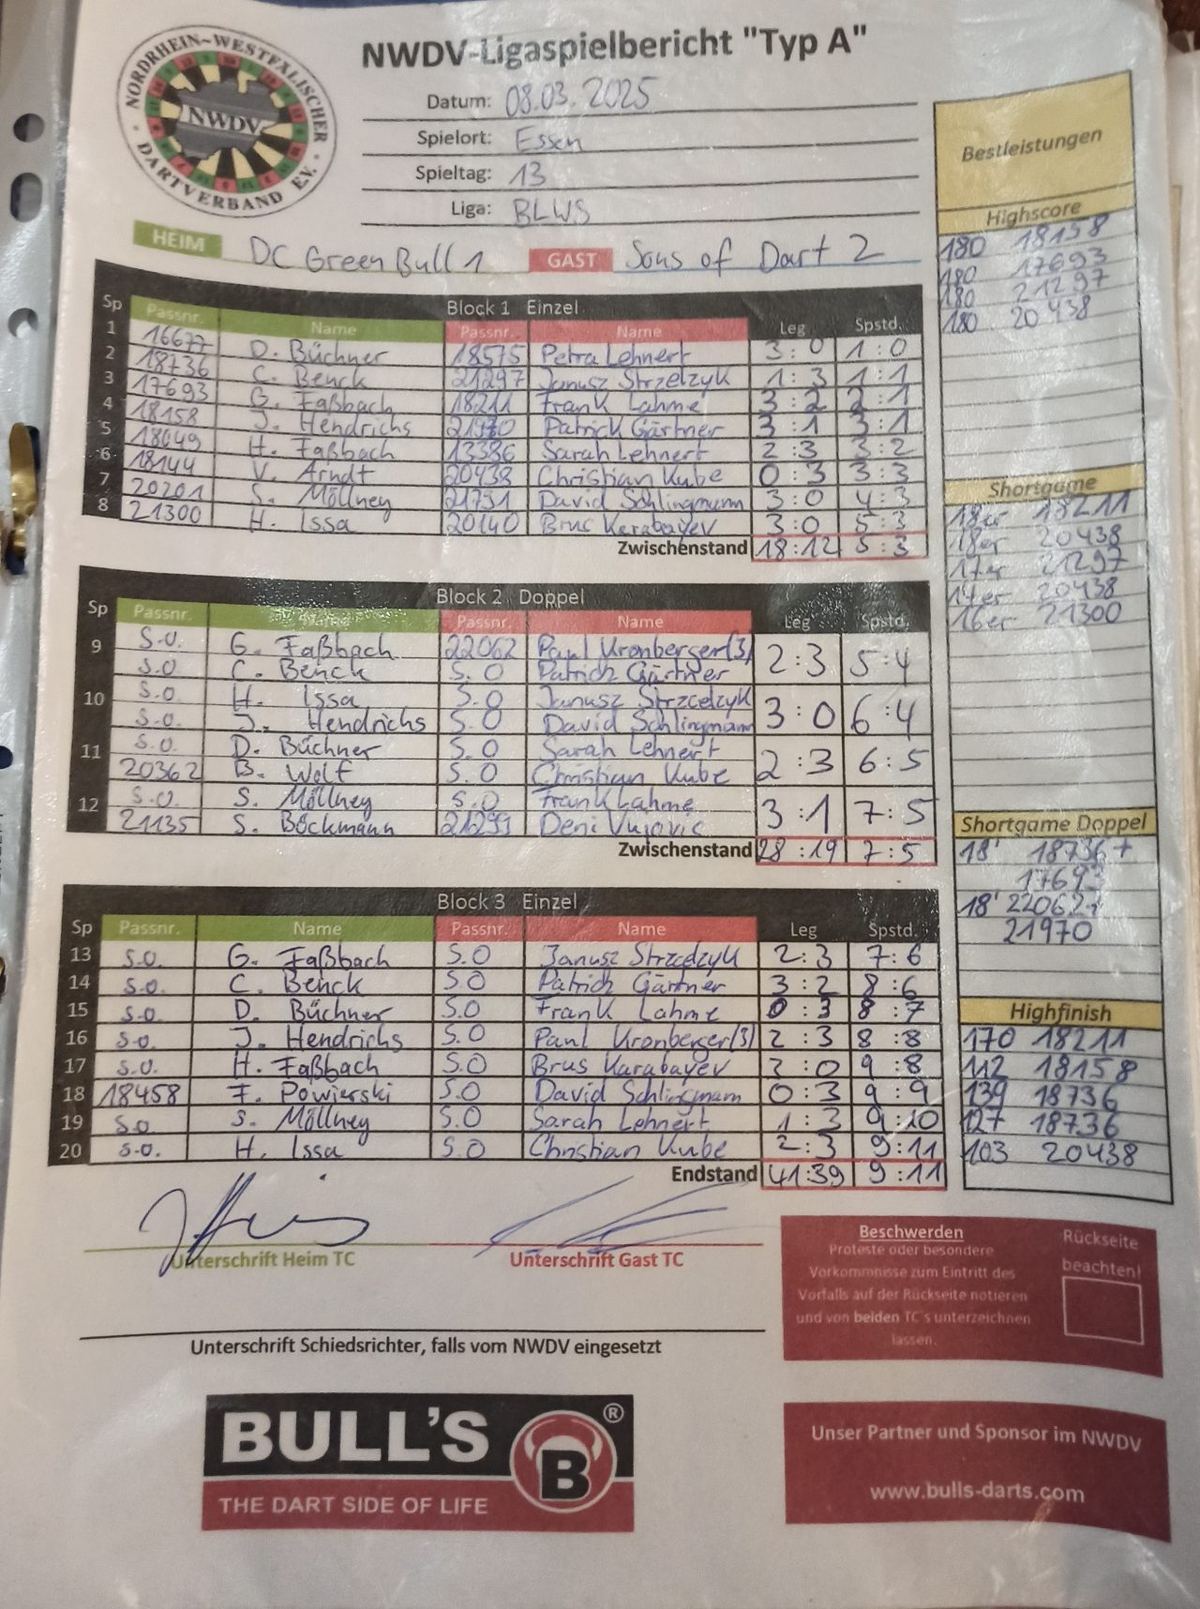 NORDRHEIN-WESTFÄLISCHER DARTVERBAND E.V.
NWDV
NWDV-Ligaspielbericht "Typ A"
Datum: 08.03.2025
Spielort: Essen
Spieltag: 13
Liga: BLWS
HEIM DC GreenBull 1 GAST Sons of Dart 2
Block 1 Einzel
Sp Passnr. Name Passnr. Name Leg Spstd.
1 16677 D. Büchner 18575 Petra Lehnert 3:0 1:0
2 18736 C. Benck 21297 Janusz Strzelzyk 1:3 1:1
3 17693 G. Faßbach 18211 Frank Lahme 3:2 2:1
4 18158 J. Hendrichs 21970 Patrick Gärtner 3:1 3:1
5 18049 H. Faßbach 13386 Sarah Lehnert 2:3 3:2
6 18144 V. Arndt 20438 Christian Kube 0:3 3:3
7 20201 S. Möllney 21731 David Schlingmann 3:0 4:3
8 21300 H. Issa 20140 Brus Karabayev 3:0 5:3
Zwischenstand 18:12 5:3
Block 2 Doppel
Sp Passnr. Name Passnr. Name Leg Spstd.
9 S.O. G. Faßbach 22062 Paul Kronberger(3) 2:3 5:4
S.O C. Benck S.O Patrick Gärtner
10 S.O H. Issa S.O Janusz Strzcelzyk 3:0 6:4
S.O. J. Hendrichs S.O David Schlingmann
11 S.O. D. Büchner S.O Sarah Lehnert 2:3 6:5
20362 B. Wolf S.O Christian Kube
12 S.O. S. Möllney S.O Frank Lahme 3:1 7:5
21135 S. Böckmann 21299 Deni Vujovic
Zwischenstand 28:19 7:5
Block 3 Einzel
Sp Passnr. Name Passnr. Name Leg Spstd.
13 S.O. G. Faßbach S.O Janusz Strzcdzyk 2:3 7:6
14 S.O. C. Benck S.O Patrick Gärtner 3:2 8:6
15 S.O. D. Büchner S.O Frank Lahme 0:3 8:7
16 S.O. J. Hendrichs S.O Paul Kronberger(3) 2:3 8:8
17 S.O. H. Faßbach S.O Brus Karabayev 3:0 9:8
18 18458 F. Powierski S.O David Schlingmann 0:3 9:9
19 S.O S. Möllney S.O Sarah Lehnert 1:3 9:10
20 S.O. H. Issa S.O Christian Kube 2:3 9:11
Endstand 41:39 9:11
Bestleistungen
Highscore
180 18158
180 17693
180 21297
180 20438
Shortgame
18er 18211
18er 20438
17er 21297
17er 20438
16er 21300
Shortgame Doppel
18' 18736 +
17693
18' 22062+
21970
Highfinish
170 18211
112 18158
139 18736
127 18736
103 20438
Unterschrift Heim TC
Unterschrift Gast TC
Unterschrift Schiedsrichter, falls vom NWDV eingesetzt
Beschwerden
Proteste oder besondere
Vorkommnisse zum Eintritt des
Vorfalls auf der Rückseite notieren
und von beiden TC's unterzeichnen
lassen.
Rückseite
beachten!
BULL'S ®
B
THE DART SIDE OF LIFE
Unser Partner und Sponsor im NWDV
www.bulls-darts.com